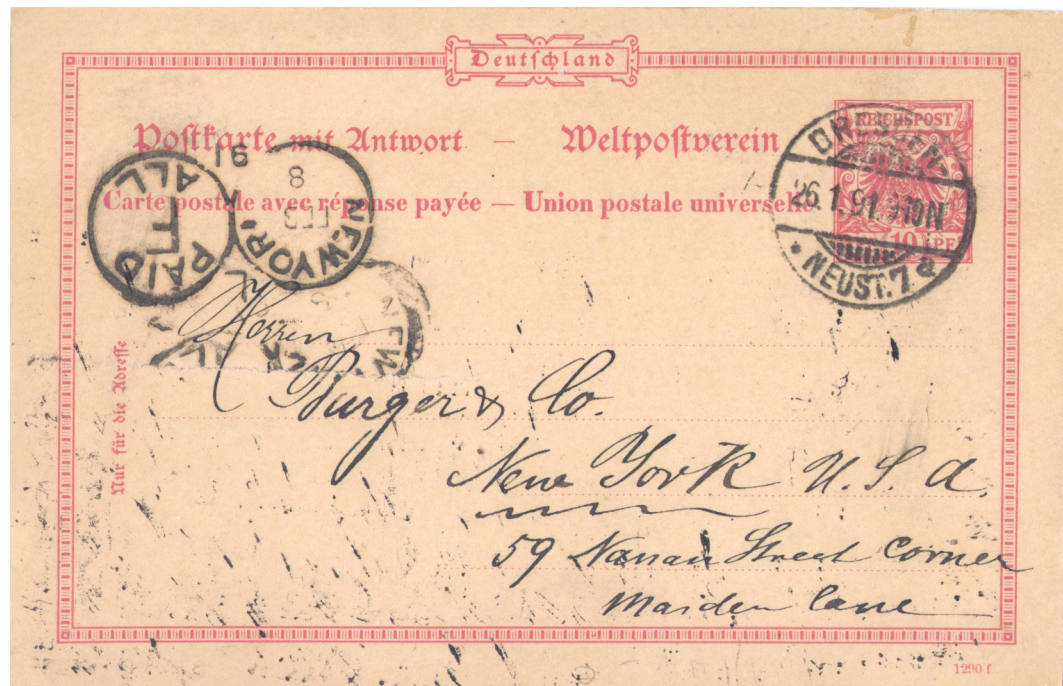 Deutschland
Postkarte mit Antwort — Weltpostverein
Carte postale avec réponse payée — Union postale universelle
REICHSPOST
10 PF
DRESDEN-
26.1.91. 9-10N
* NEUST. 7 d
NEW YORK
FEB
8
91
PAID
ALL
NEW
Nur für die Adresse
Herren
Burger & Co.
New York U. S. A.
59 Nassau Street Corner
Maiden Lane
1290 f